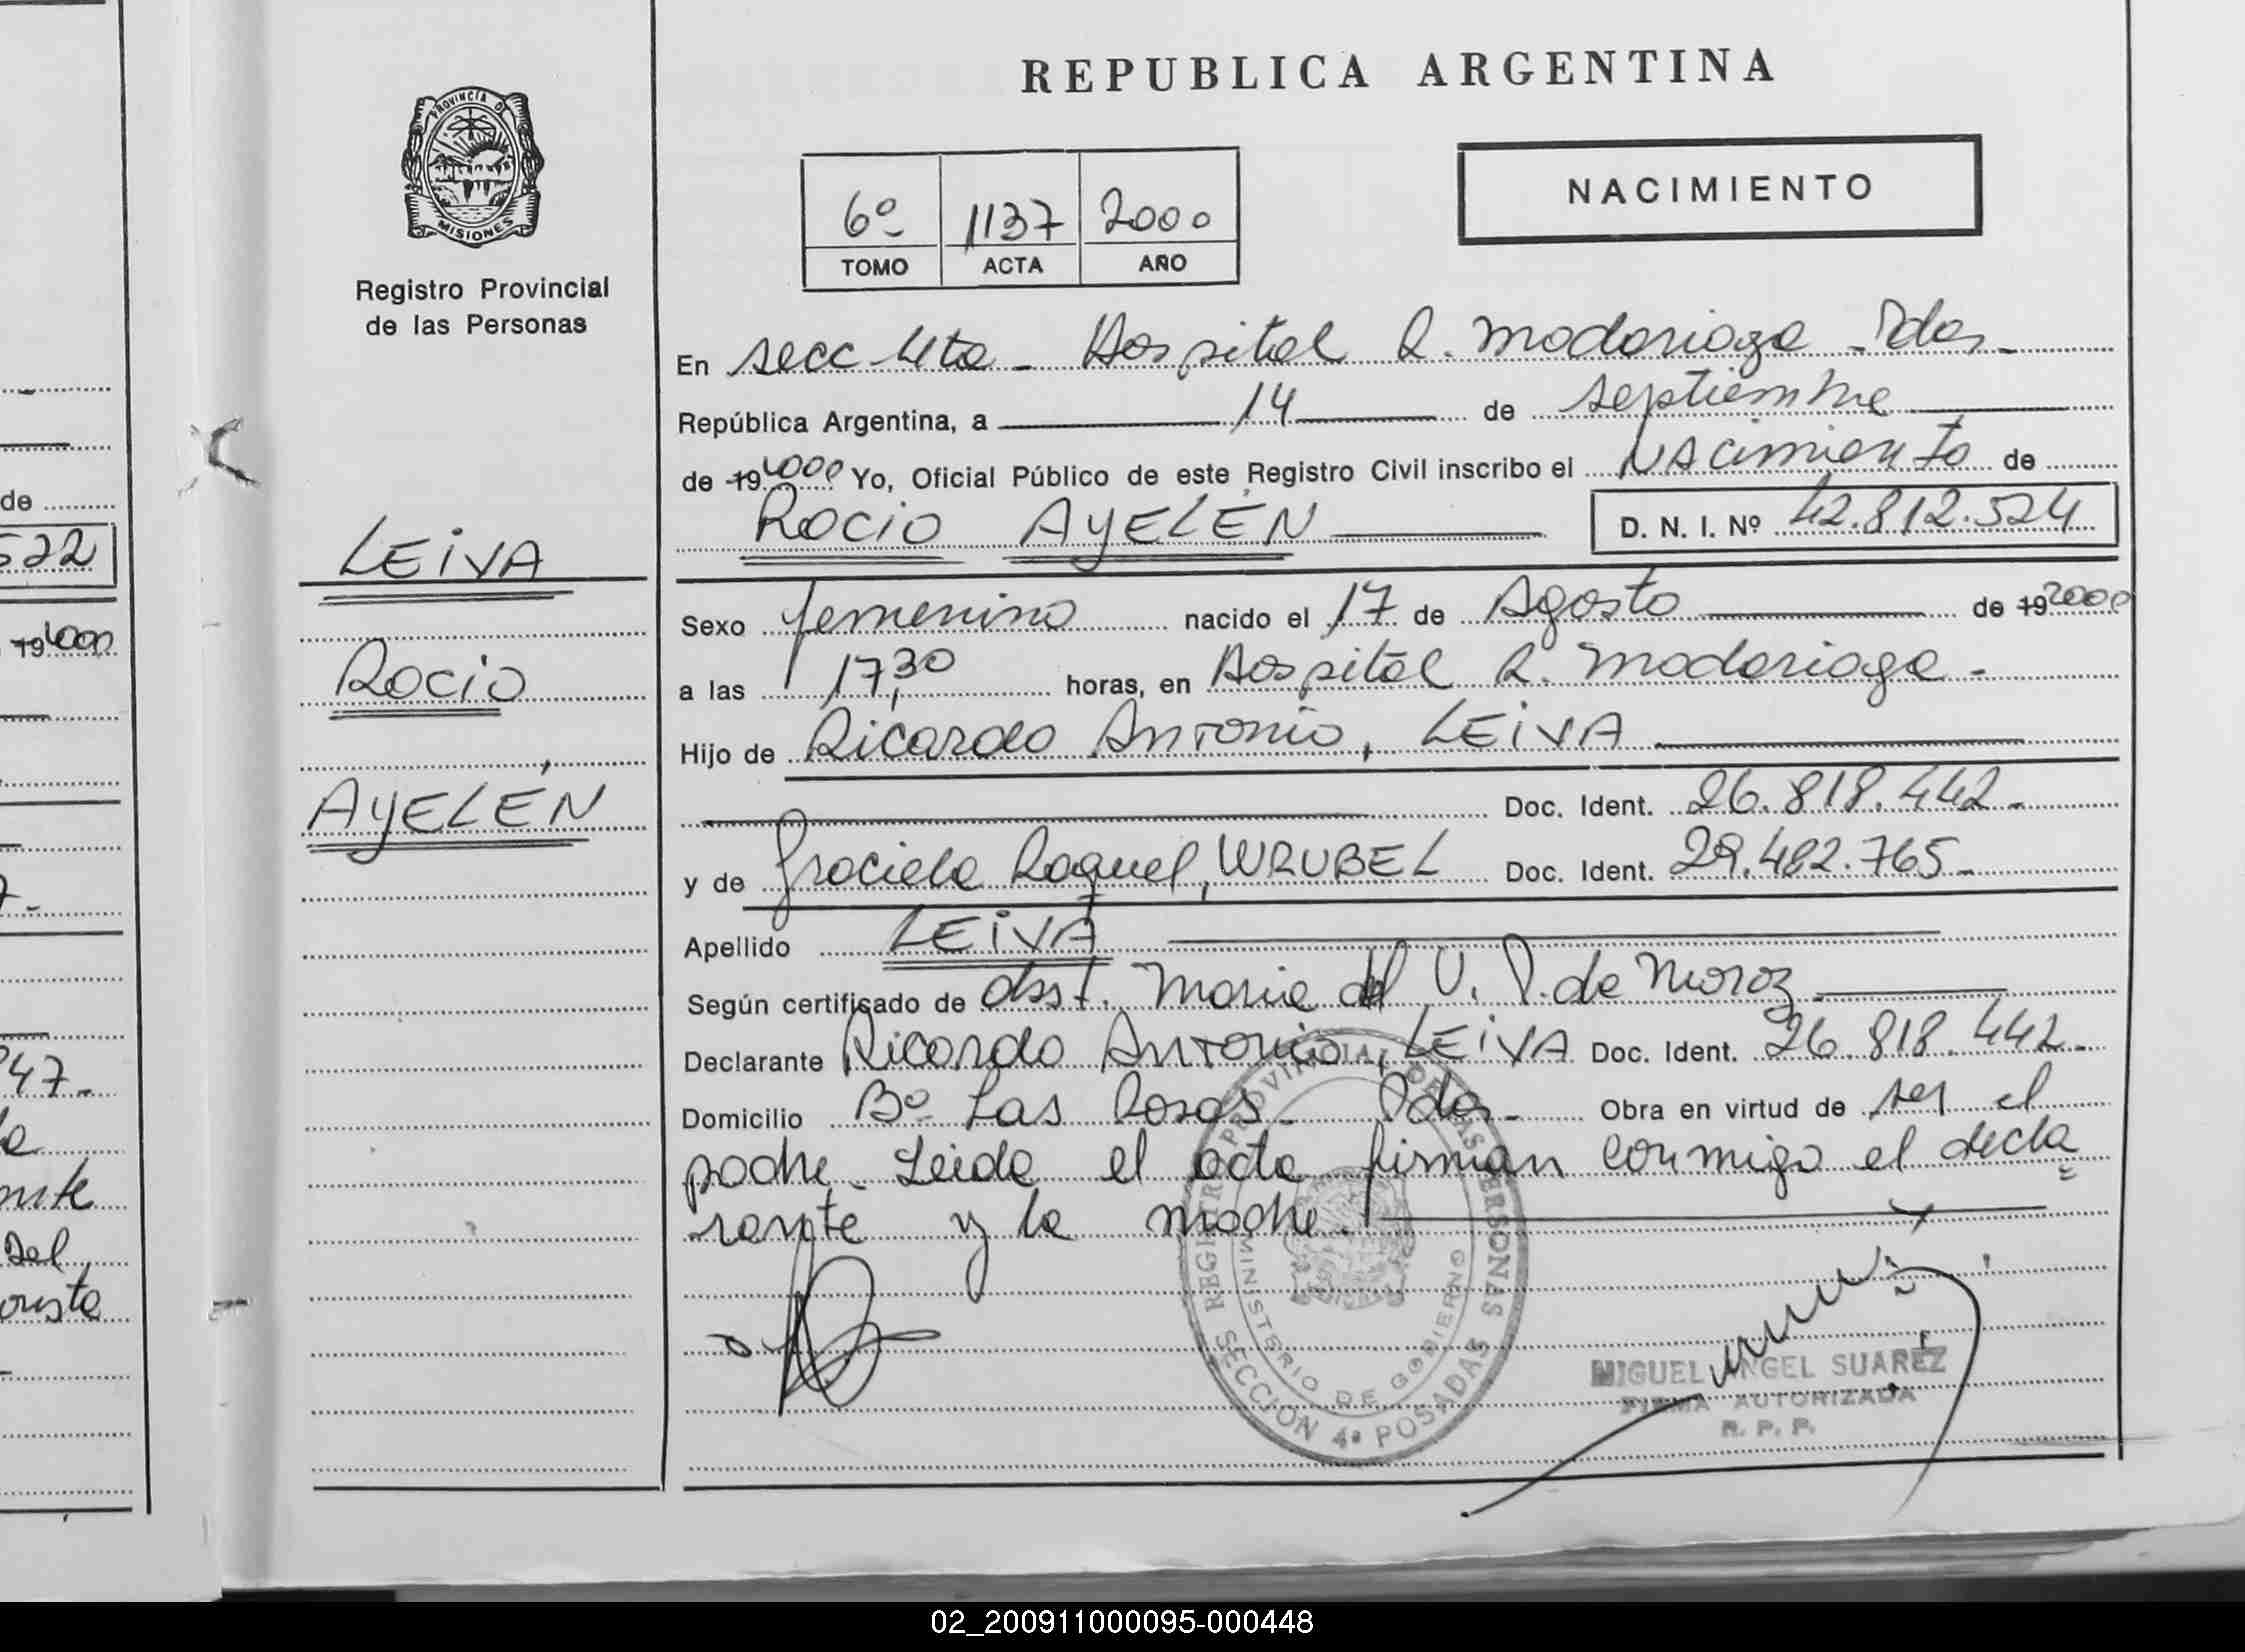 REPUBLICA ARGENTINA
PROVINCIA DE
MISIONES
Registro Provincial
de las Personas
6º 1137 2000
TOMO ACTA AÑO
NACIMIENTO
En secc 4ta - Hospital R. Madariaga - Pdas -
República Argentina, a 14 de septiembre
de 19 2000 Yo, Oficial Público de este Registro Civil inscribo el Nacimiento de
ROCIO AYELÉN D. N. I. Nº 42.812.524
LEIVA
ROCIO
AYELÉN
Sexo femenino nacido el 17 de Agosto de 19 2000
a las 17,30 horas, en Hospital R. Madariaga -
Hijo de Ricardo Antonio, LEIVA
Doc. Ident. 26.818.442 -
y de Graciela Raquel, WRUBEL Doc. Ident. 29.482.765 -
Apellido LEIVA
Según certificado de obst. Maria del V. P. de Moroz
Declarante Ricardo Antonio, LEIVA Doc. Ident. 26.818.442 -
Domicilio Bº Las Rosas - Pdas - Obra en virtud de ser el
padre - Leida el acta firman conmigo el decla
rante y la madre.
REGISTRO PROVINCIAL DE LAS PERSONAS
MINISTERIO DE GOBIERNO
SECCION 4ª POSADAS
MIGUEL ANGEL SUAREZ
FIRMA AUTORIZADA
R. P. P.
de
522
19 2000
47 -
02_200911000095-000448